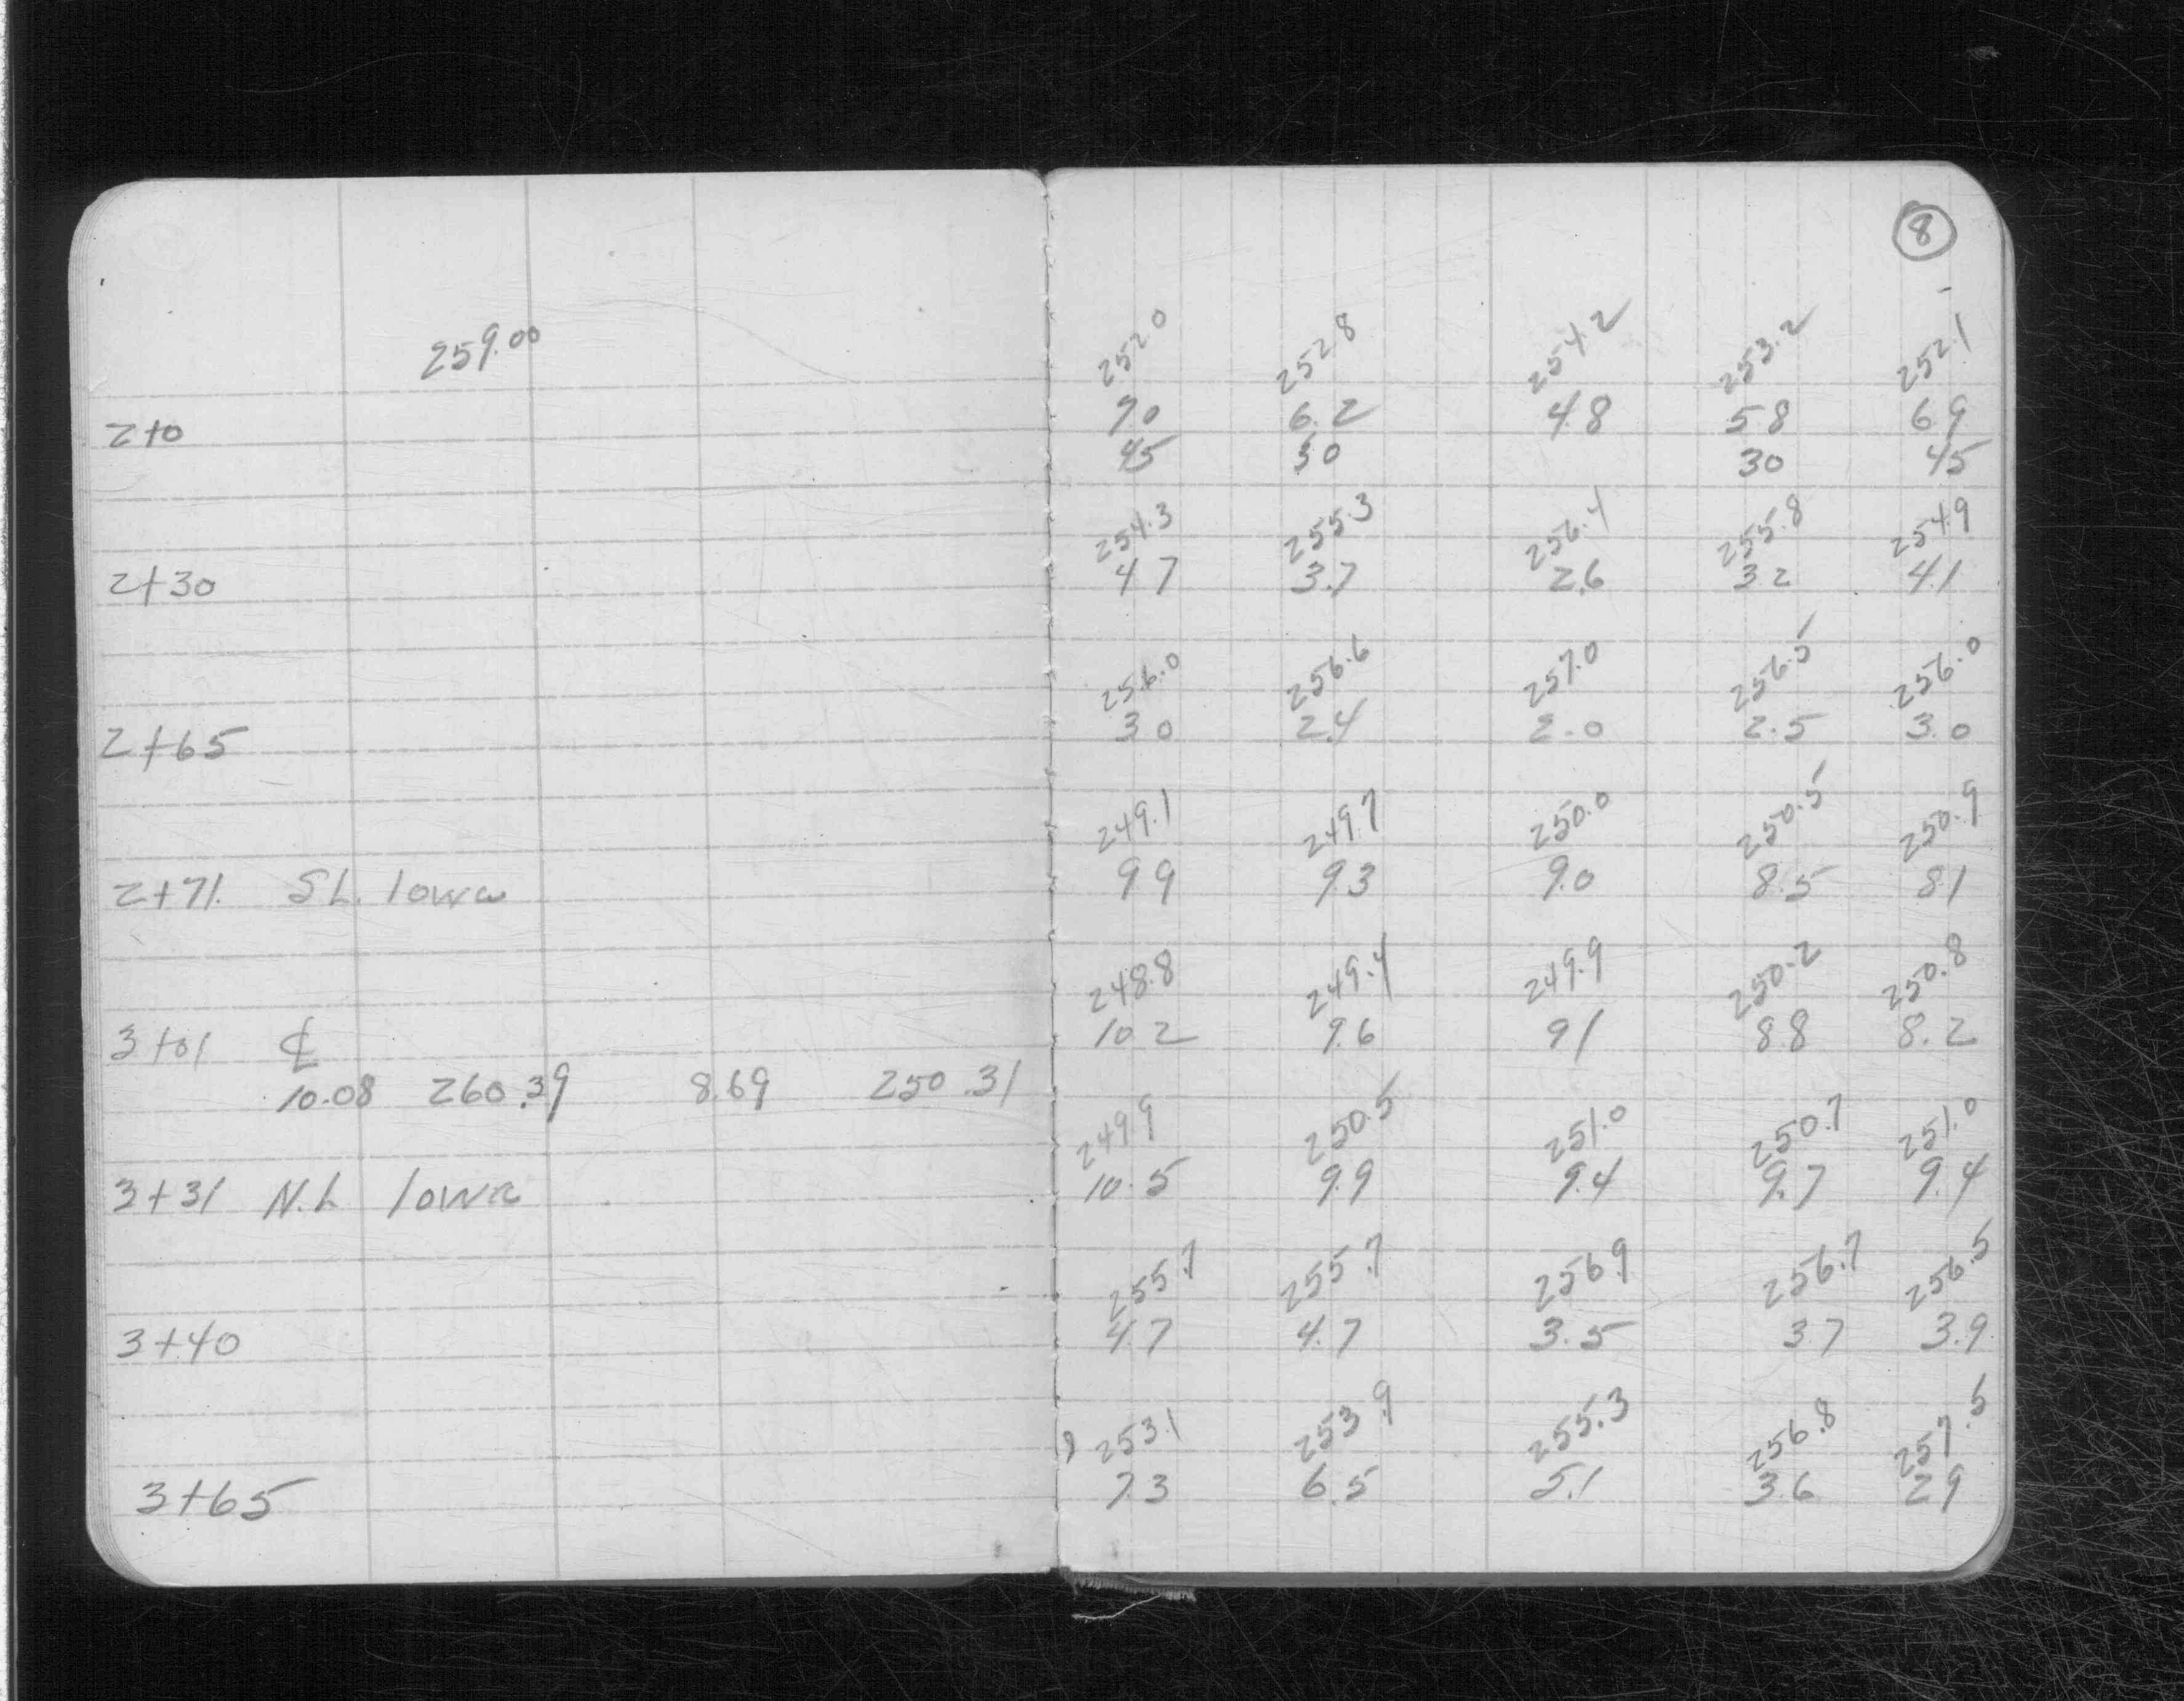 8
259.00
252.0 252.8 254.2 253.2 252.1
2+0 7.0 6.2 4.8 5.8 6.9
45 30 30 45
254.3 255.3 256.4 255.8 254.9
2+30 4.7 3.7 2.6 3.2 4.1
256.0 256.6 257.0 256.5 256.0
2+65 3.0 2.4 2.0 2.5 3.0
249.1 249.7 250.0 250.5 250.9
2+71 S.L. Iowa 9.9 9.3 9.0 8.5 8.1
248.8 249.4 249.9 250.2 250.8
3+01 ℄ 10.2 9.6 9.1 8.8 8.2
10.08 260.39 8.69 250.31
249.9 250.5 251.0 250.7 251.0
3+31 N.L Iowa 10.5 9.9 9.4 9.7 9.4
255.7 255.7 256.9 256.7 256.5
3+40 4.7 4.7 3.5 3.7 3.9
253.1 253.9 255.3 256.8 257.5
3+65 7.3 6.5 5.1 3.6 2.9